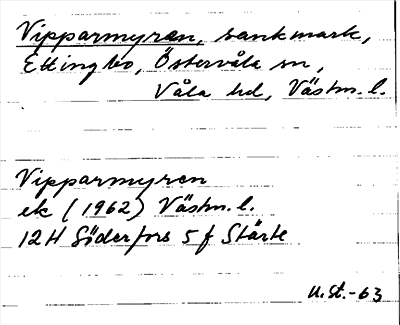 Vipparmyren, sankmark,
Ettingbo, Östervåla sn,
Våla hd, Västm. l.
Vipparmyren
ek (1962) Västm. l.
12H Söderfors 5 f Stärte
U.St.-63